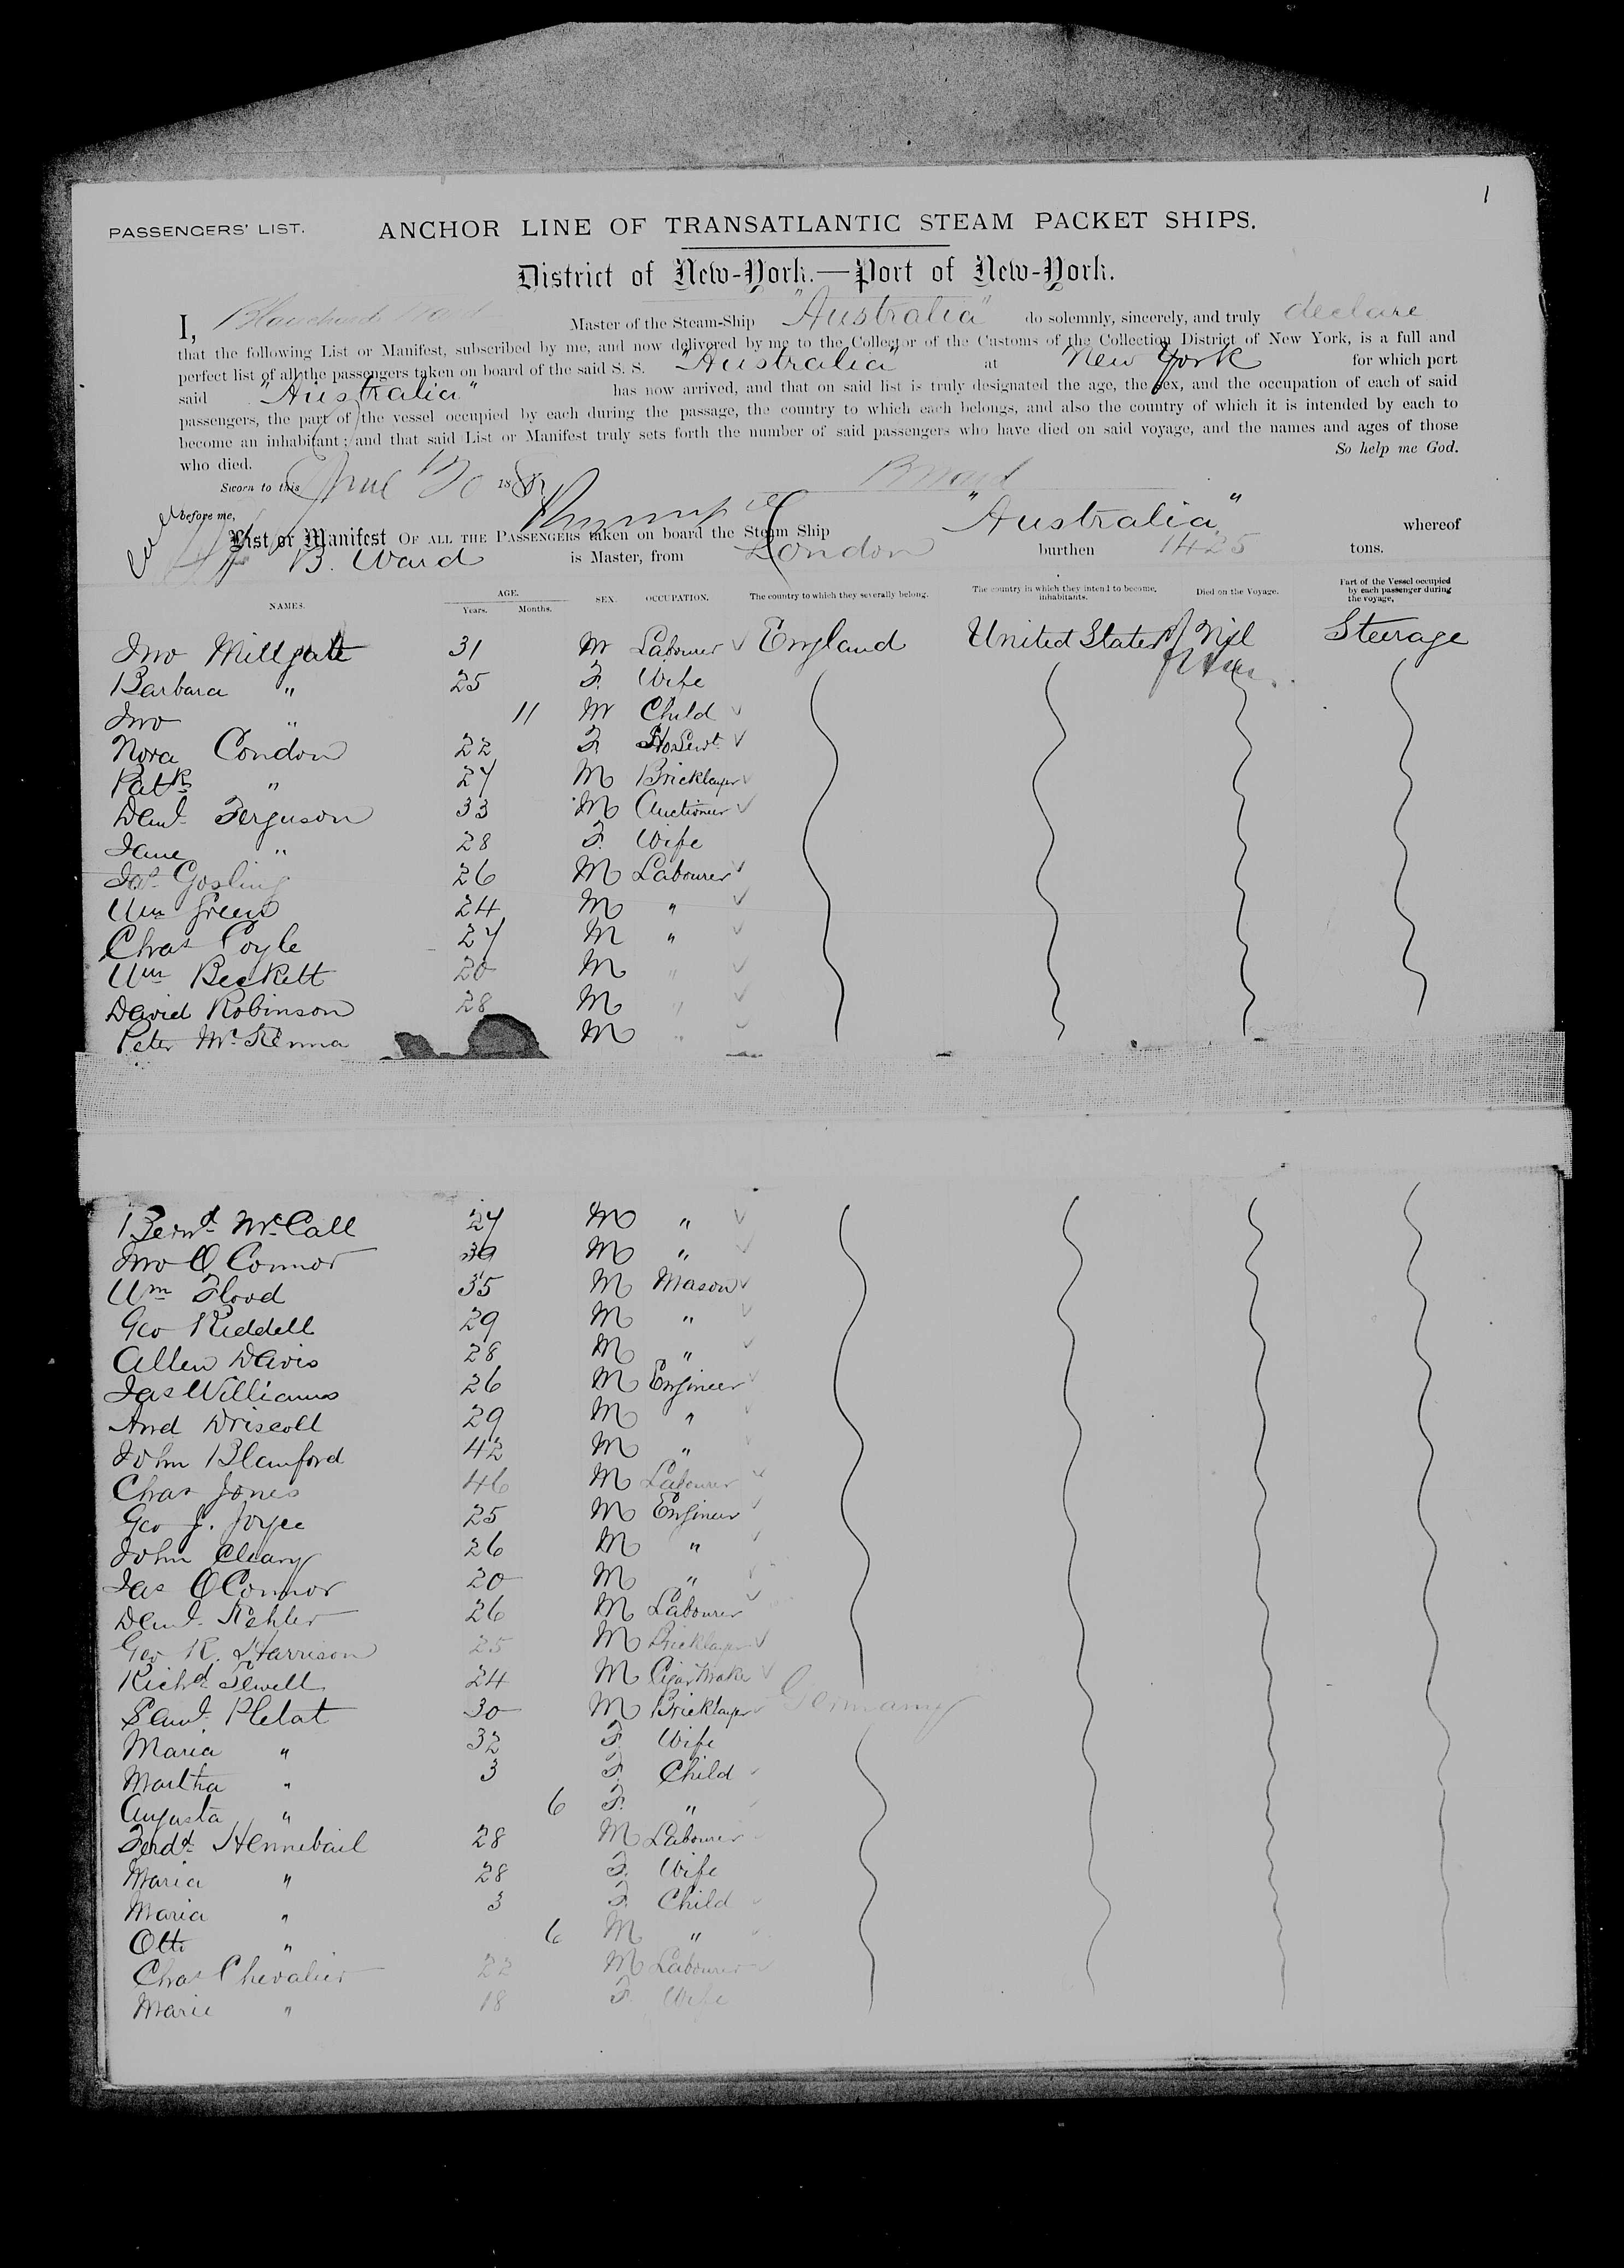 1
PASSENGERS' LIST. ANCHOR LINE OF TRANSATLANTIC STEAM PACKET SHIPS.
District of New-York.—Port of New-York.
I, Blanchard Ward Master of the Steam-Ship "Australia" do solemnly, sincerely, and truly declare
that the following List or Manifest, subscribed by me, and now delivered by me to the Collector of the Customs of the Collection District of New York, is a full and
perfect list of all the passengers taken on board of the said S. S. "Australia" at New York for which port
said "Australia" has now arrived, and that on said list is truly designated the age, the sex, and the occupation of each of said
passengers, the part of the vessel occupied by each during the passage, the country to which each belongs, and also the country of which it is intended by each to
become an inhabitant; and that said List or Manifest truly sets forth the number of said passengers who have died on said voyage, and the names and ages of those
who died. So help me God.
Sworn to this 188 B Ward
before me,
List or Manifest OF ALL THE PASSENGERS taken on board the Steam Ship "Australia" whereof
B. Ward is Master, from London burthen 1425 tons.
NAMES. AGE. Years. Months. SEX. OCCUPATION. The country to which they severally belong. The country in which they intend to become inhabitants. Died on the Voyage. Part of the Vessel occupied by each passenger during the voyage,
Jno Millgate 31 M Labourer England United States Nil Steerage
Barbara " 25 F. Wife
Jno " 11 M Child
Nora Condon 22 F. HoServt
Patk " 27 M Bricklayer
Danl. Ferguson 33 M Auctioneer
Jane " 28 F. Wife
Jas. Gosling 26 M Labourer
Wm Green 24 M "
Chas Coyle 27 M "
Wm Beckett 20 M "
David Robinson 28 M "
Peter McKenna M "
Bernd McCall 27 M "
Jno O Connor 39 M "
Wm Flood 35 M Mason
Geo Riddell 29 M "
Allen Davis 28 M "
Jas Williams 26 M Engineer
And Driscoll 29 M "
John Blanford 42 M "
Chas Jones 46 M Labourer
Geo J. Joyce 25 M Engineer
John Cleary 26 M "
Jas O Connor 20 M "
Danl. Kehler 26 M Labourer
Geo R. Harrison 25 M Bricklayer
Richd Sewell 24 M Cigar Make
Saml. Pletat 30 M Bricklayer Germany
Maria " 32 F. Wife
Martha " 3 F. Child
Augusta " 6 F. "
Ferdd Hennebail 28 M Labourer
Maria " 28 F. Wife
Maria " 3 F. Child
Otto " 6 M "
Chas Chevalier 22 M Labourer
Marie " 18 F. Wife